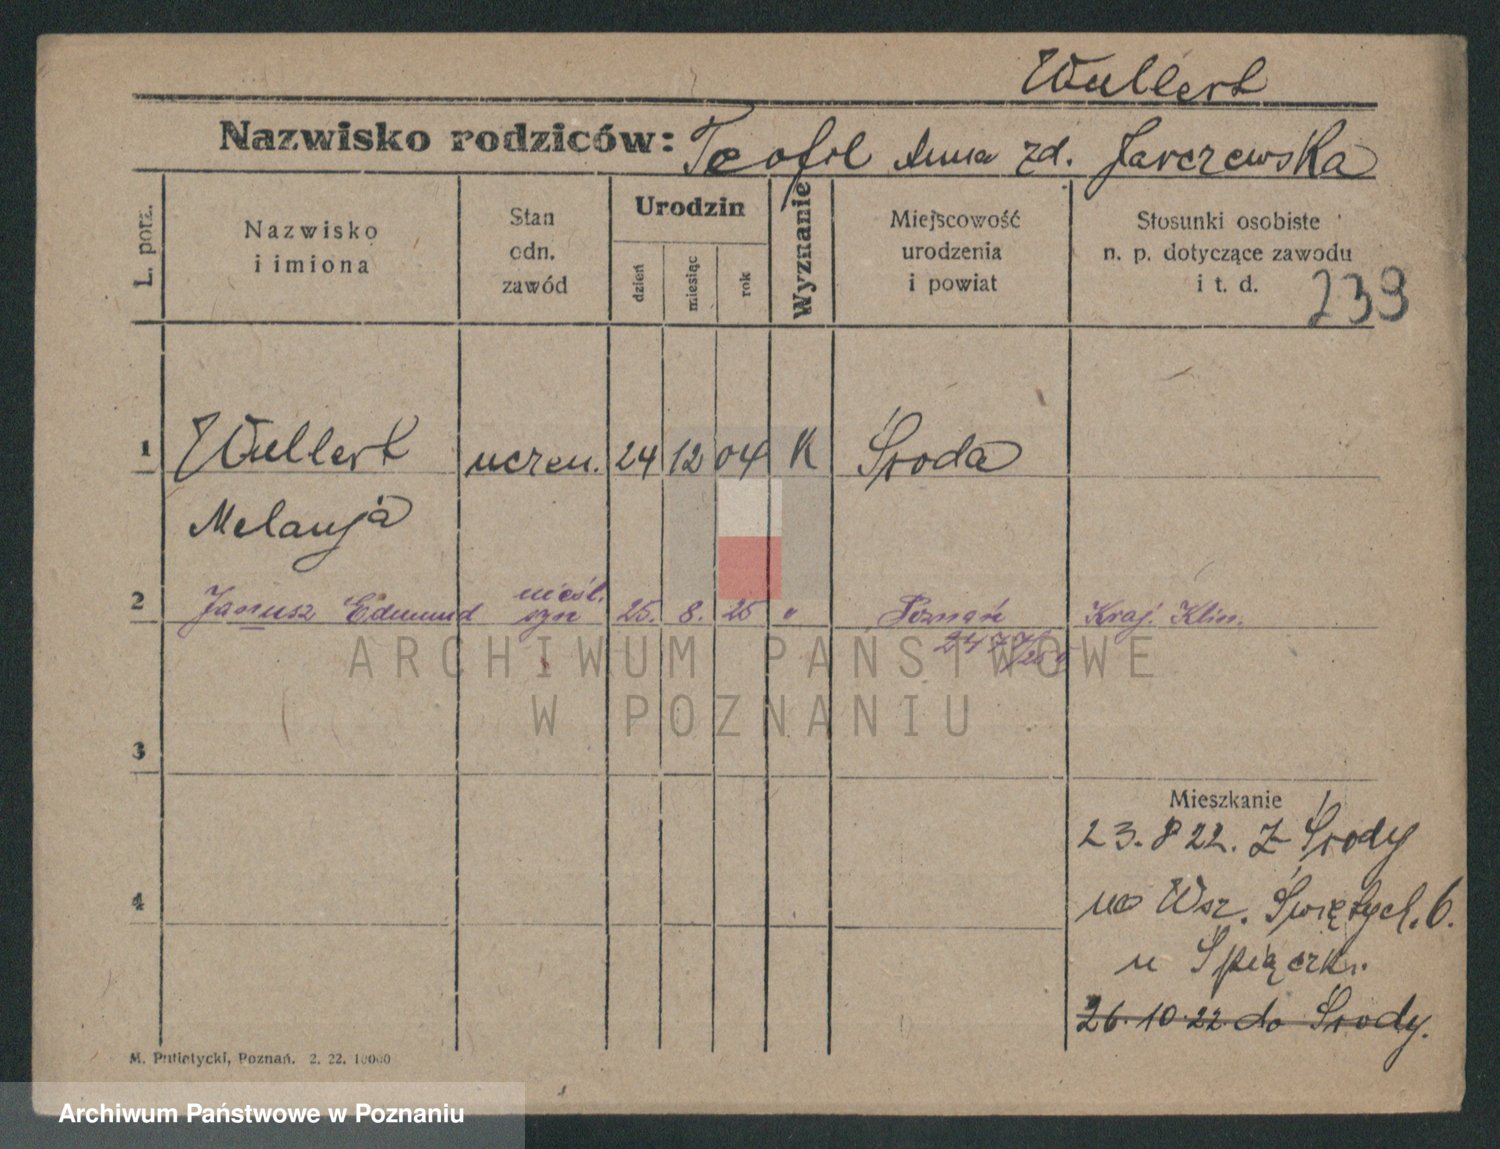 Wullert
Nazwisko rodziców: Teofil Anna zd. Jarczewska
L. porz.
Nazwisko
i imiona
Stan
odn.
zawód
Urodzin
dzień
miesiąc
rok
Wyznanie
Miejscowość
urodzenia
i powiat
Stosunki osobiste
n. p. dotyczące zawodu
i t. d.
239
1 Wullert uczen. 24 12 04 K Środa
Melanja
2 Janusz Edmund nieśl. syn 25. 8. 25 " Poznań Kraj. Klin.
ARCHIWUM PAŃSTWOWE
W POZNANIU
3
Mieszkanie
23.8 22. Z Środy
na Wsz. Świętych. 6.
4
u
26.10.22. do Środy.
M. Putiatycki, Poznań. 2. 22. 10000
Archiwum Państwowe w Poznaniu